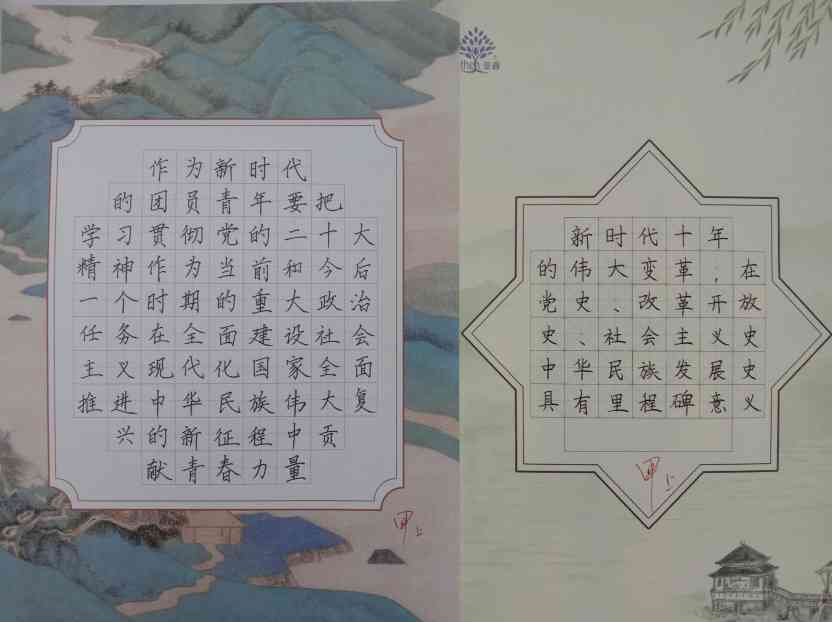 作为新时代
的团员青年要把
学习贯彻党的二十大
精神作为当前和今后
一个时期的重大政治
任务在全面建设社会
主义现代化国家全面
推进中华民族伟大复
兴的新征程中贡
献青春力量
甲上
新时代十年
的伟大变革,在
党史、改革开放
史、社会主义史
中华民族发展史
具有里程碑意义
甲上